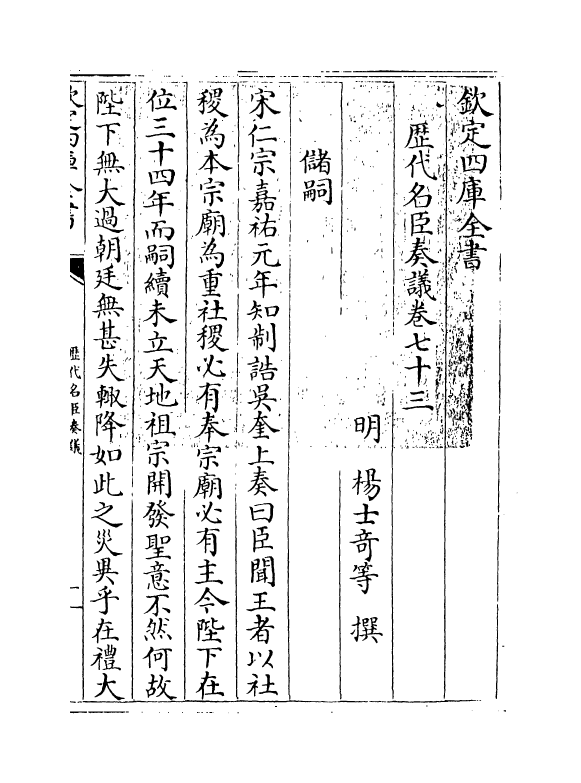 欽定四庫全書
歴代名臣奏議卷七十三
明 楊士奇等 撰
儲嗣
宋仁宗嘉祐元年知制誥吳奎上奏曰臣聞王者以社
稷為本宗廟為重社稷必有奉宗廟必有主今陛下在
位三十四年而嗣續未立天地祖宗開發聖意不然何故
陛下無大過朝廷無甚失輙降如此之災異乎在禮大
歴代名臣奏議